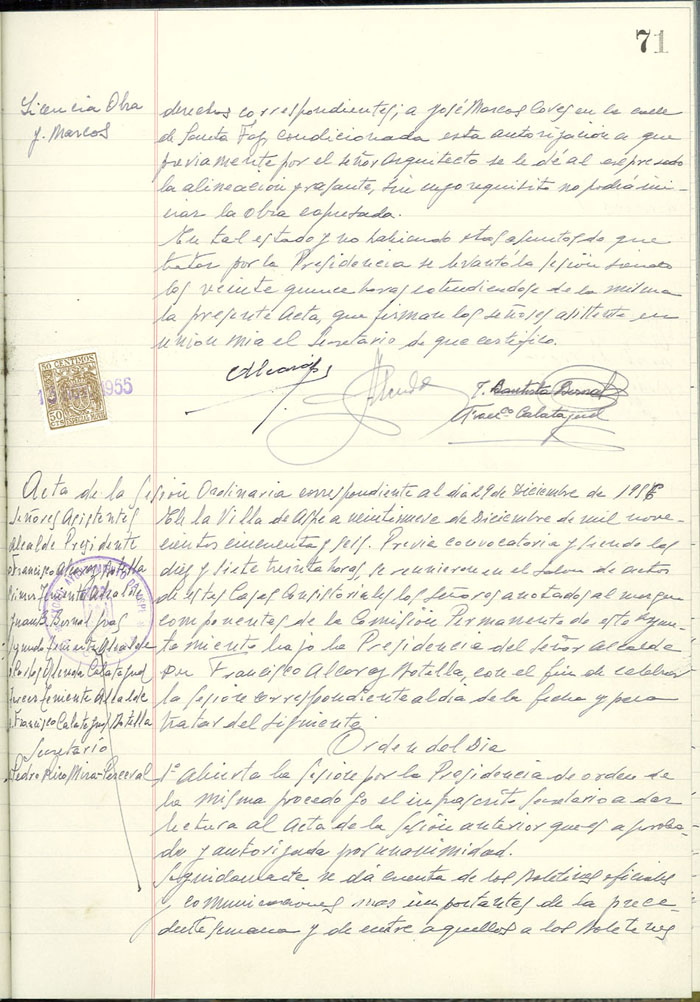 71
Licencia Obra
J. Marcos
derechos correspondientes; a José Marcos Coves en la calle
de Santa Faz, condicionada esta autorización a que
previamente por el señor Arquitecto se le dé al expresado
la alineación y rasante, sin cuyo requisito no podrá ini-
ciar la obra expresada.
En tal estado y no habiendo otros asuntos de que
tratar por la Presidencia se levantó la sesión siendo
las veinte quince horas extendiendose de la misma
la presente Acta, que firman los señores asistente en
union mia el Secretario de que certifico.
50 CENTIMOS
1955
50
CTS
J. Bautista Bernal
Franco Calatayud
Acta de la Sesión Ordinaria correspondiente al dia 29 de Diciembre de 1956
Señores Asistentes
Alcalde Presidente
Francisco Alcaraz Botella
Primer Teniente Alcalde
Juan B. Bernal
Segundo Teniente Alcalde
Calatayud
Tercer Teniente Alcalde
Francisco Calatayud Botella
Secretario
Pedro Mira-Perceval
En la Villa de Aspe a veintinueve de Diciembre de mil nove-
cientos cincuenta y seis. Previa convocatoria y siendo las
diez y siete treinta horas, se reunieron en el Salon de actos
de estas Casas Consistoriales los señores anotados al margen
componentes de la Comisión Permanente de este Ayun-
tamiento bajo la Presidencia del Señor Alcalde
Don Francisco Alcaraz Botella, con el fin de celebrar
la sesión correspondiente al dia de la fecha y para
tratar del siguiente
Orden del Dia
1º Abierta la sesión por la Presidencia de orden de
la misma procedo yo el infrascrito Secretario a dar
lectura al Acta de la sesión anterior que es aproba-
da y autorizada por unanimidad.
Seguidamente se dá cuenta de los Boletines oficiales
y comunicaciones mas importantes de la prece-
dente semana y de entre aquellos a los Boletines